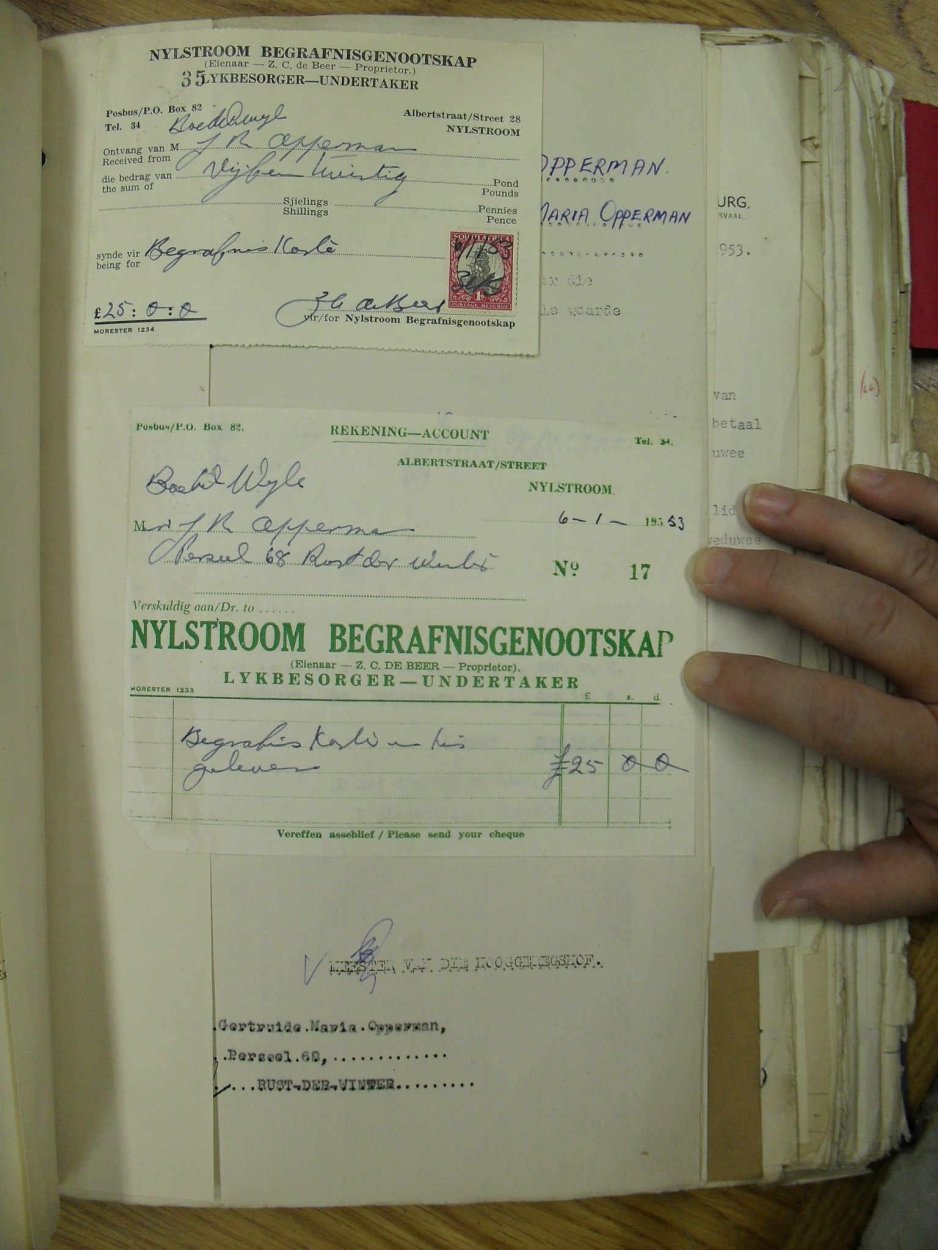 NYLSTROOM BEGRAFNISGENOOTSKAP
(Eienaar — Z. C. de Beer — Proprietor.)
35 LYKBESORGER—UNDERTAKER
Posbus/P.O. Box 82
Albertstraat/Street 28
Tel. 34 Boedel Wyle
NYLSTROOM
Ontvang van M J R Opperman
Received from
die bedrag van Vijf en Twintig Pond
the sum of Pounds
Sjielings Pennies
Shillings Pence
synde vir Begrafnis Koste
being for
SOUTH AFRICA
6/1/53
1D
POSTAGE REVENUE
£25: 0: 0
Z C de Beer
vir/for Nylstroom Begrafnisgenootskap
MORESTER 1234
OPPERMAN.
MARIA OPPERMAN
URG,
SVAAL.
953.
die
waarde
van
betaal
uwee
lid
weduwee
Posbus/P.O. Box 82.
REKENING—ACCOUNT
Tel. 34.
ALBERTSTRAAT/STREET
Boedel Wyle
NYLSTROOM.
6-1- 1953
M J R Opperman
Perseel 68 Rust der Winter
No 17
Verskuldig aan/Dr. to ......
NYLSTROOM BEGRAFNISGENOOTSKAP
(Eienaar — Z. C. DE BEER — Proprietor).
LYKBESORGER—UNDERTAKER
MORESTER 1233
£ s. d.
Begrafnis Koste en kis
gelewer £25 0 0
Vereffen asseblief / Please send your cheque
MEESTER VAN DIE HOOGGEREGSHOF.
Gertruide.Maria.Opperman,
..Perseel.68,.............
....RUST.DER.WINTER.........